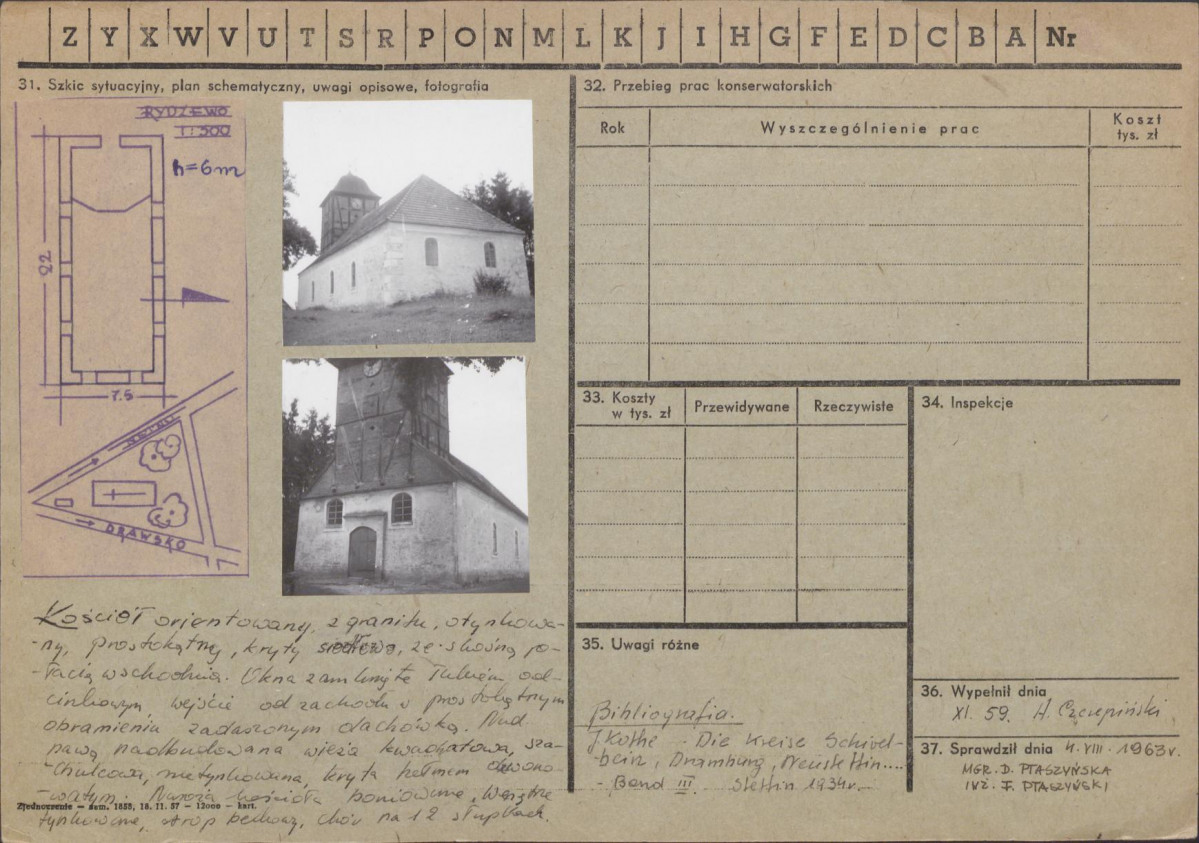 Z Y X W V U T S R P O N M L K J I H G F E D C B A Nr
31. Szkic sytuacyjny, plan schematyczny, uwagi opisowe, fotografia
RYDZEWO
1:500
h=6m
22
7.5
DRAWSKO
Kościół orientowany, z granitu, otynkowa-
-ny, prostokątny, kryty siodłowo, ze skośną po-
-łacią wschodnią. Okna zamknięte łukiem od-
cinkowym wejście od zachodu w prostokątnym
obramieniu zadaszonym dachówką. Nad
nawą nadbudowana wieża kwadratowa, sza-
-chulcowa, nietynkowana, kryta hełmem
Naroża kościoła boniowane, Wnętrze
tynkowane, strop belkowy, chór na 12 słupkach.
Zjednoczenie — zam. 1855, 18. 11. 57 — 12000 — kart.
32. Przebieg prac konserwatorskich
Rok
Wyszczególnienie prac
Koszt
tys. zł
33. Koszty
w tys. zł
Przewidywane
Rzeczywiste
34. Inspekcje
35. Uwagi różne
Bibliografia.
J Kothe - Die Kreise Schivel-
-bein, Dramburg, Neustettin....
- Band III. Stettin 1934r.
36. Wypełnił dnia
XI. 59. H. Czerepiński
37. Sprawdził dnia 4. VIII. 1963r.
MGR. D. PTASZYŃSKA
INŻ. J. PTASZYŃSKI